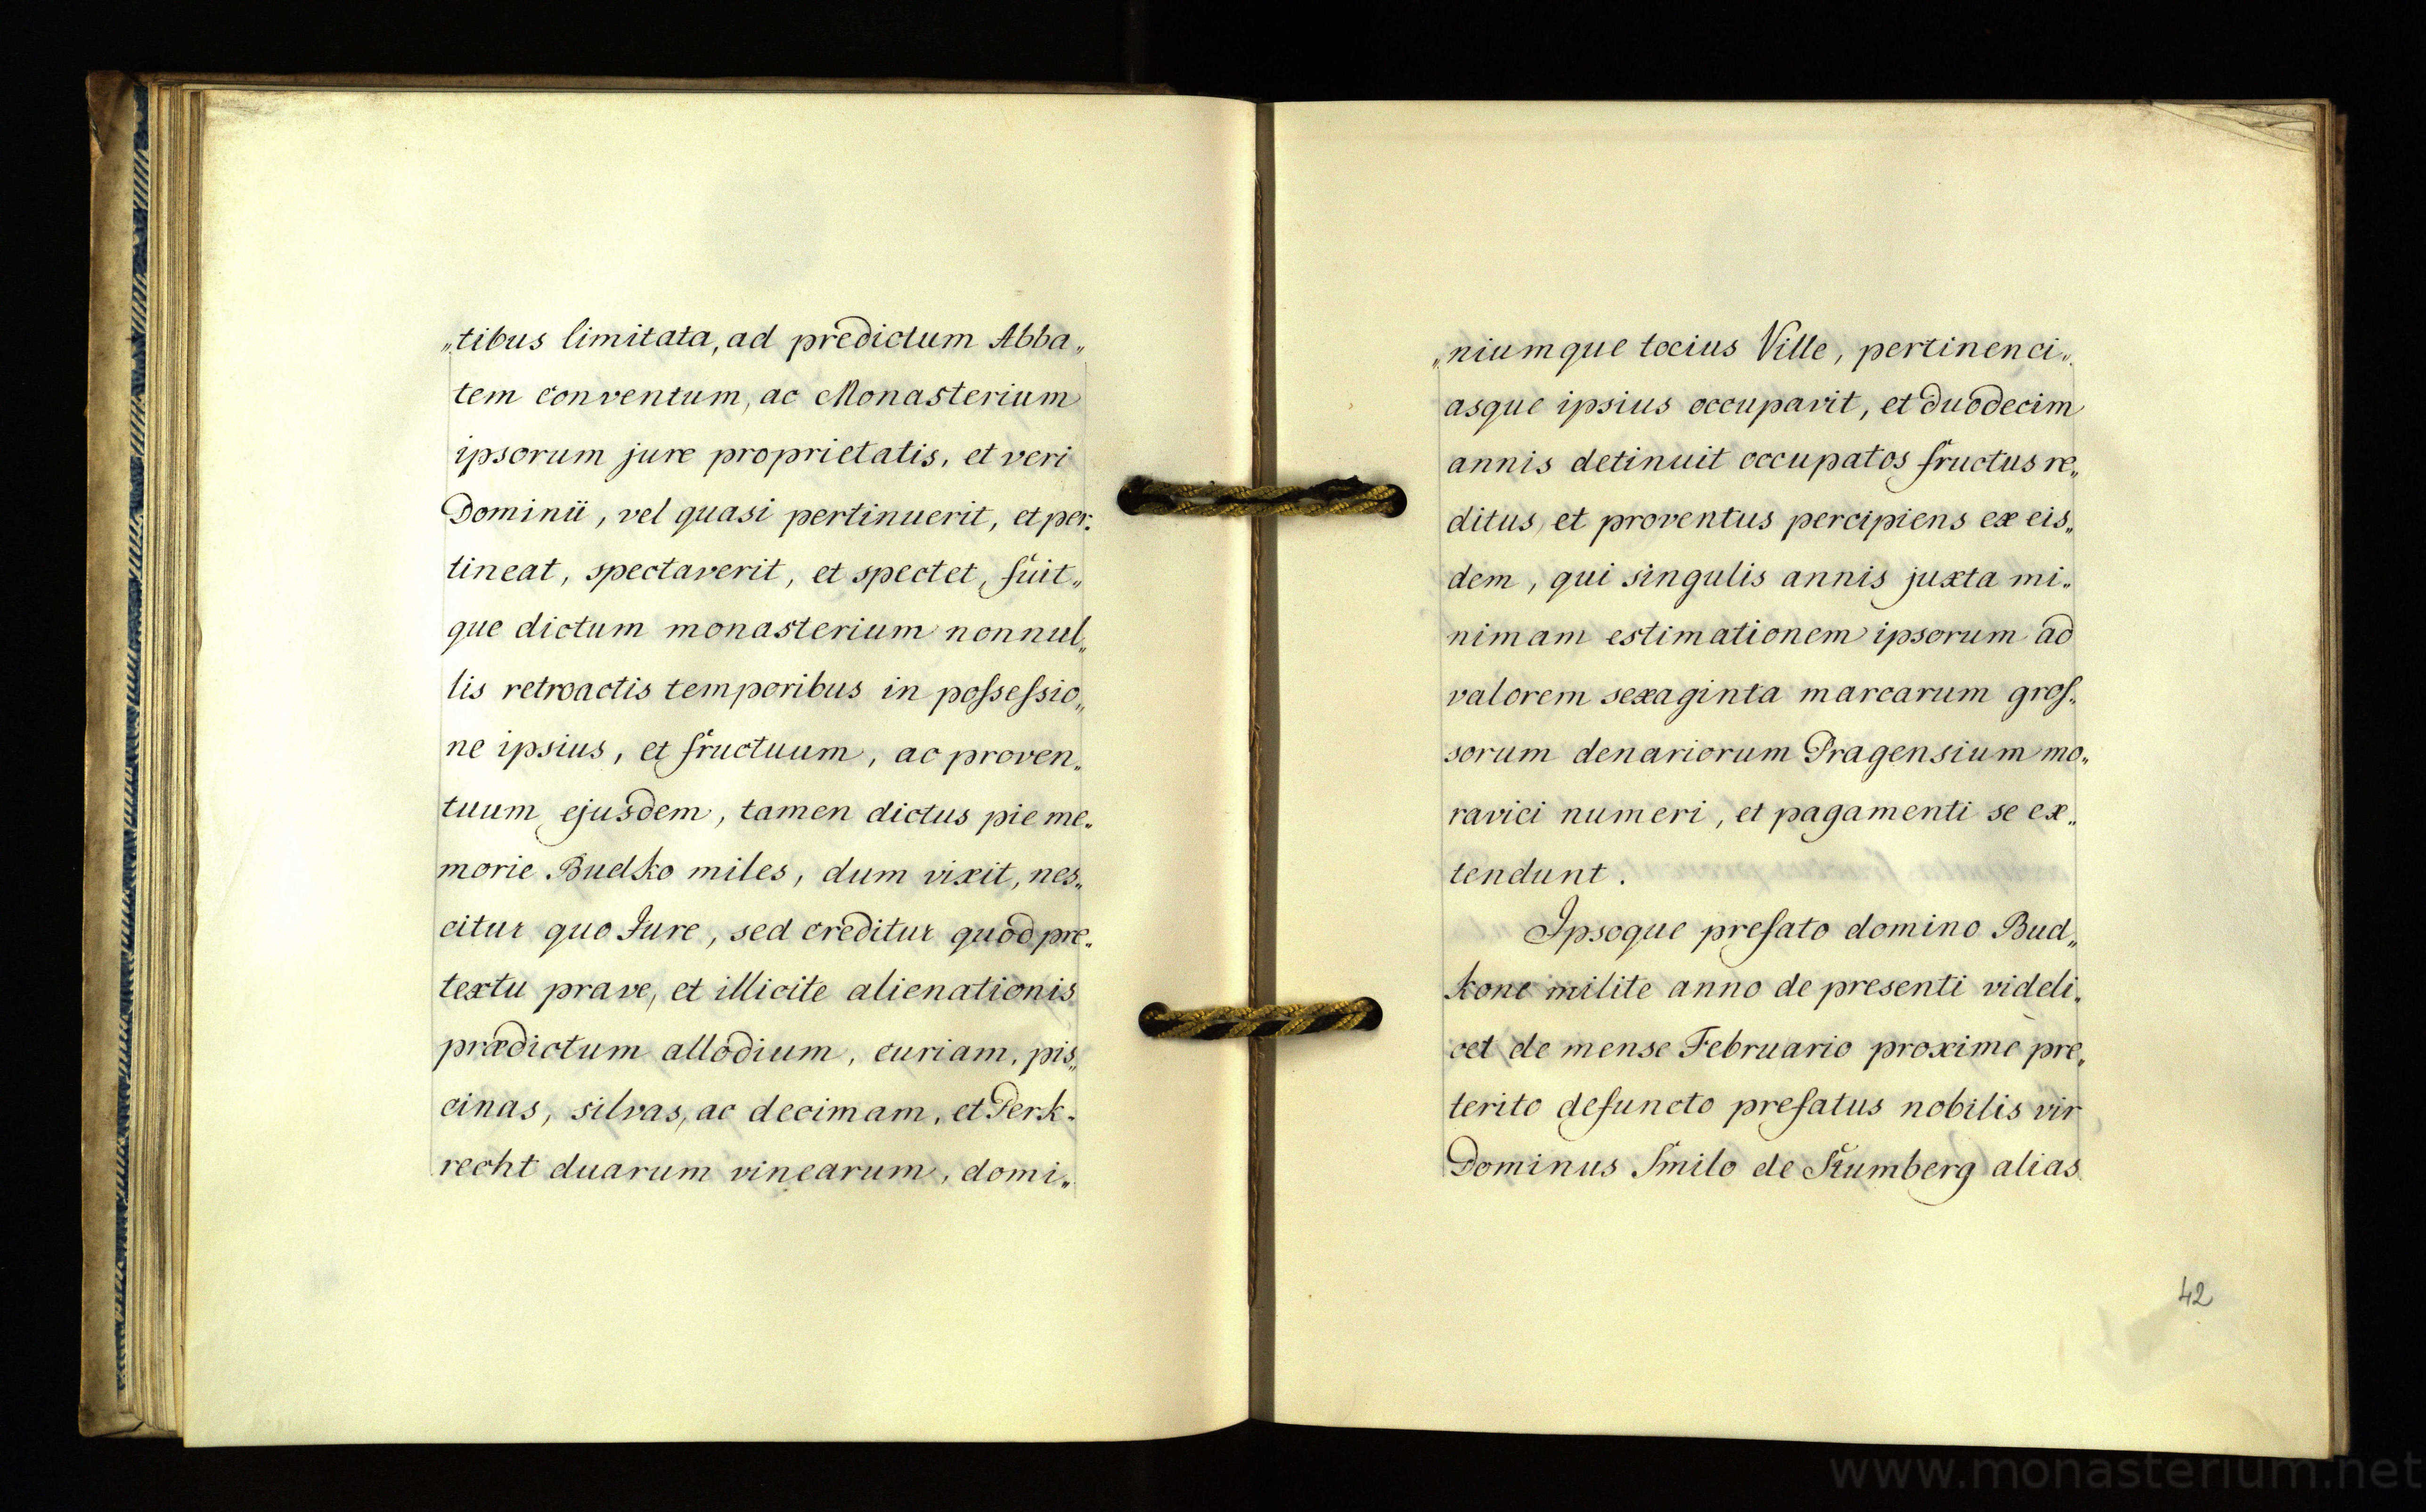 „tibus limitata, ad predictum Abba„
tem conventum, ac Monasterium
ipsorum jure proprietatis, et veri
Dominii, vel quasi pertinuerit, et per„
tineat, spectaverit, et spectet, fuit„
que dictum monasterium nonnul„
lis retroactis temporibus in poſseſsio„
ne ipsius, et fructuum, ac proven„
tuum ejusdem, tamen dictus pie me„
morie Budko miles, dum vixit, nes„
citur quo Jure, sed creditur quod pre„
textu prave, et illicite alienationis
prædictum allodium, curiam, pis„
cinas, silvas, ac decimam, et Perk„
recht duarum vinearum, domi„
„niumque tocius Ville, pertinenci„
asque ipsius occupavit, et duodecim
annis detinuit occupatos fructus re„
ditus, et proventus percipiens ex eis„
dem, qui singulis annis juxta mi„
nimam estimationem ipsorum ad
valorem sexaginta marcarum groſ„
sorum denariorum Pragensium mo„
ravici numeri, et pagamenti se ex„
tendunt.
Ipsoque prefato domino Bud„
kone milite anno de presenti videli„
cet de mense Februario proxime pre„
terito defuncto prefatus nobilis vir
Dominus Smilo de Kumberg alias
42
www.monasterium.net